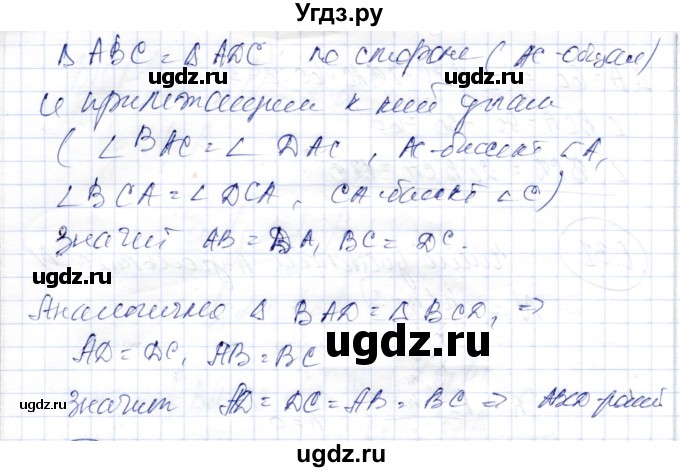 Угдз.ру
Δ ABC = Δ ADC по стороне (AC - общая)
ugdz.ru ugdz.ru
и прилежащим к ней углам
(∠BAC = ∠DAC, AC - биссект ∠A,
ugdz.ru ugdz.ru
∠BCA = ∠DCA, CA - биссект ∠C)
Значит AB = DA, BC = DC.
ugdz.ru ugdz.ru
Аналогично Δ BAD = Δ BCD, ⇒
AD = DC, AB = BC
ugdz.ru
ugdz.ru ugdz.ru
Значит AD = DC = AB = BC ⇒ ABCD - ромб